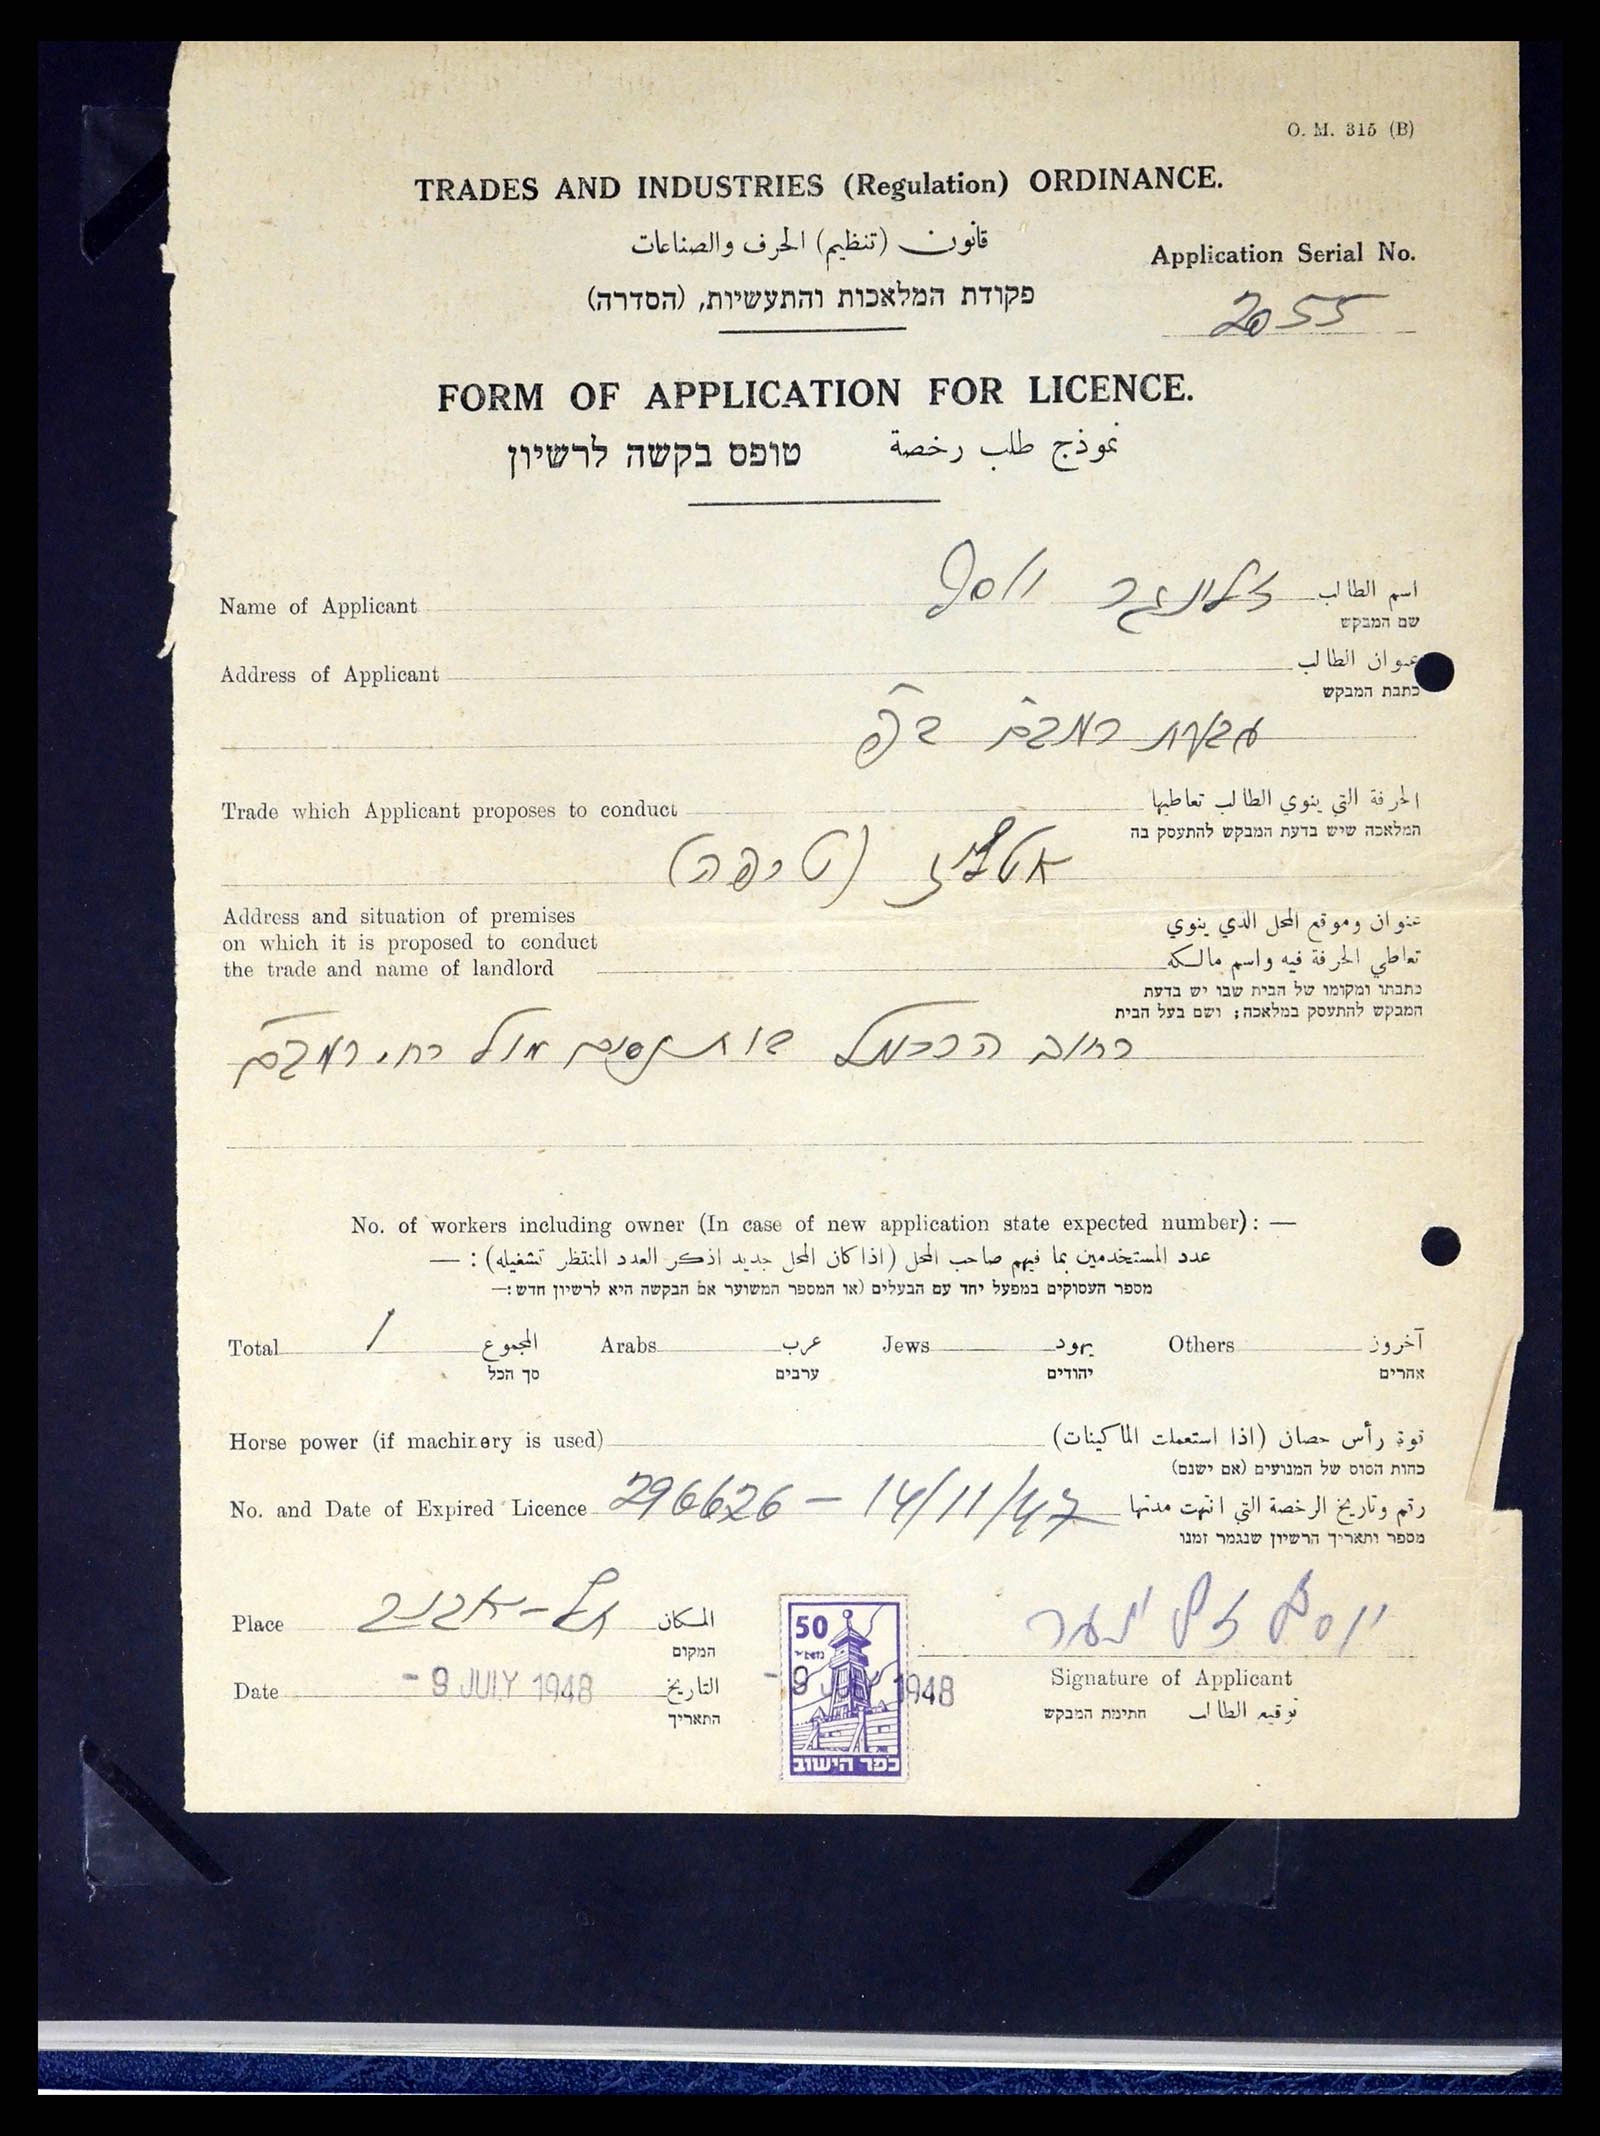 O. M. 315 (B)
TRADES AND INDUSTRIES (Regulation) ORDINANCE.
قانون (تنظيم) الحرف والصناعات
פקודת המלאכות והתעשיות, (הסדרה)
Application Serial No.
2055
FORM OF APPLICATION FOR LICENCE.
نموذج طلب رخصة
טופס בקשה לרשיון
Name of Applicant יוסף اسم الطالب
שם המבקש
Address of Applicant عنوان الطالب
כתבת המבקש
רמב״ם
Trade which Applicant proposes to conduct الحرفة التي ينوي الطالب تعاطيها
המלאכה שיש בדעת המבקש להתעסק בה
אטליז (טרפה)
Address and situation of premises
on which it is proposed to conduct
the trade and name of landlord
عنوان وموقع المحل الذي ينوي
تعاطي الحرفة فيه واسم مالكه
כתבתו ומקומו של הבית שבו יש בדעת
המבקש להתעסק במלאכה; ושם בעל הבית
רחוב הכרמל מול רח׳ רמב״ם
No. of workers including owner (In case of new application state expected number): —
عدد المستخدمين بما فيهم صاحب المحل (اذا كان المحل جديد اذكر العدد المنتظر تشغيله): —
מספר העסוקים במפעל יחד עם הבעלים (או המספר המשוער אם הבקשה היא לרשיון חדש:—
Total 1 المجموع Arabs عرب Jews يهود Others آخرون
סך הכל ערבים יהודים אחרים
Horse power (if machinery is used) قوة رأس حصان (اذا استعملت الماكينات)
כחות הסוס של המנועים (אם ישנם)
No. and Date of Expired Licence 296626 — 14/11/47 رقم وتاريخ الرخصة التي انتهت مدتها
מספר ותאריך הרשיון שנגמר זמנו
Place תל-אביב المكان
המקום
Date - 9 JULY 1948 التاريخ
התאריך
50
- 9 JULY 1948
כפר הישוב
יוסף
Signature of Applicant
توقيع الطالب חתימת המבקש